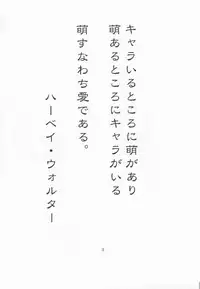 キャラいるところに萌があり
萌あるところにキャラがいる
萌すなわち愛である。
ハーベイ・ウォルター